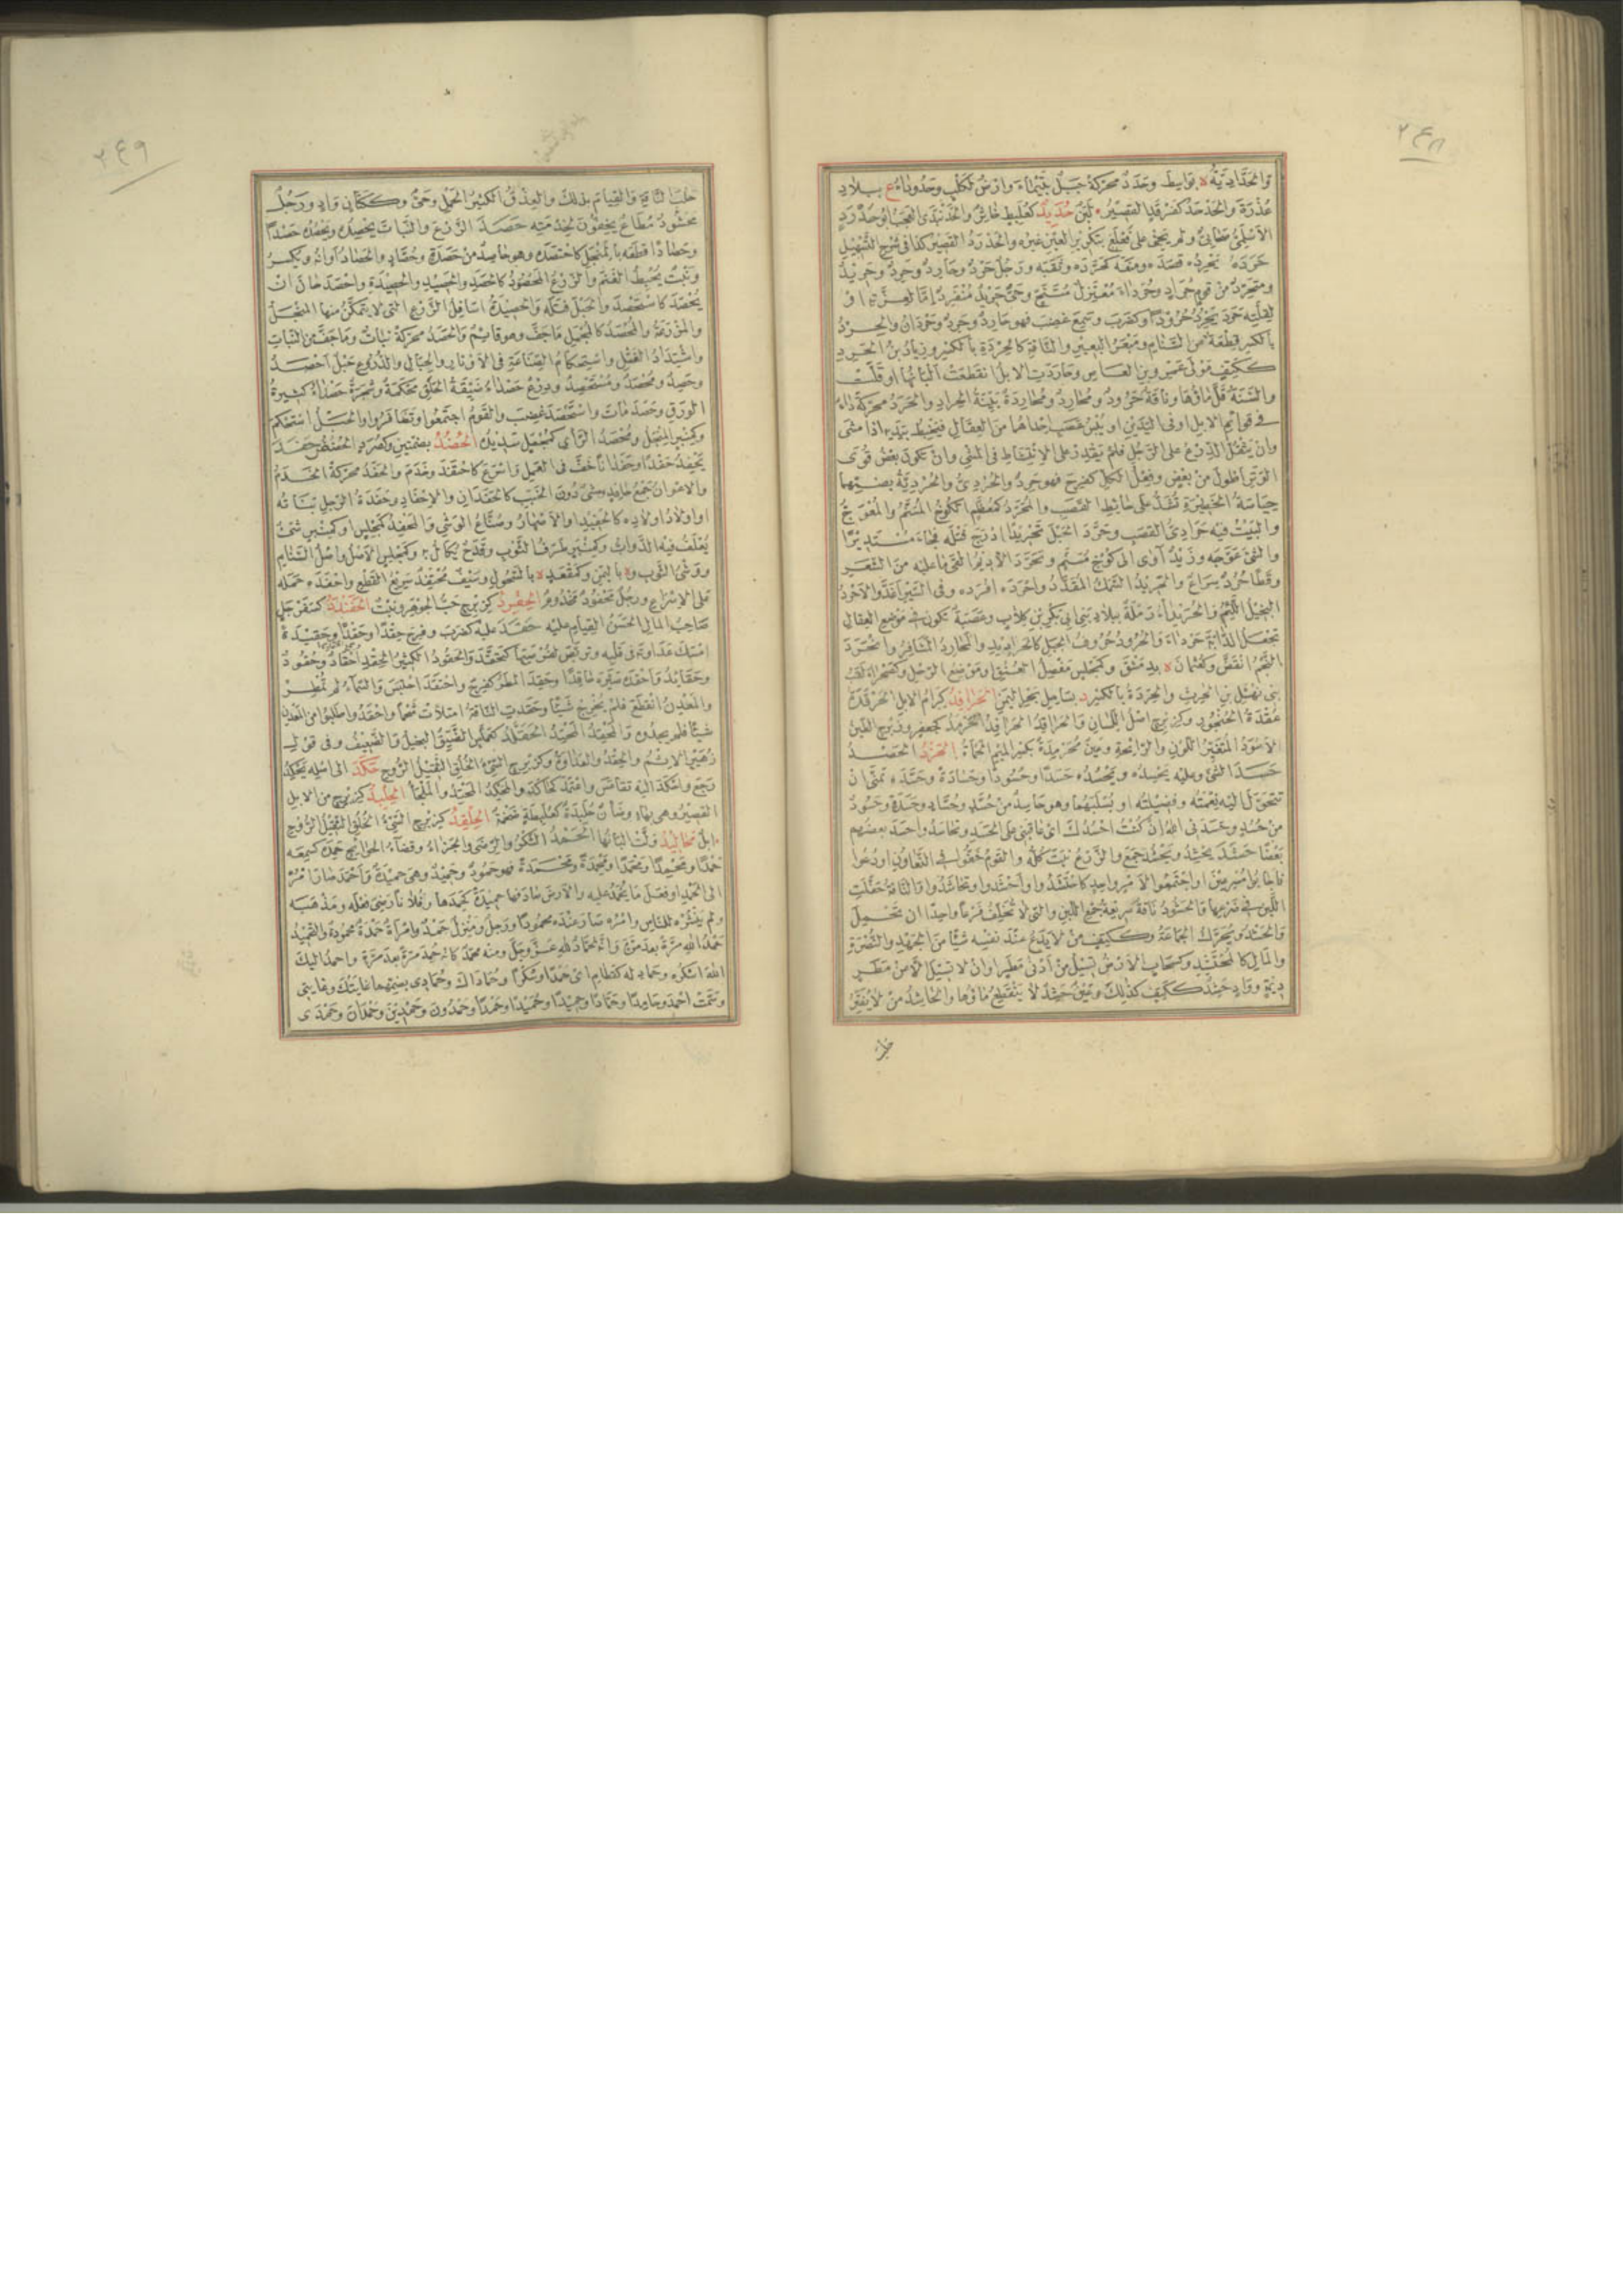 ٢٤٨
وَالحَدَّادِيَّةُ ة بِوَاسِطَ وحَدَدٌ محرّكةً جَبَلٌ بِتَيْمَاءَ وارضٌ لكَلْبٍ وحَدُودَاءُ ع ببلادِ
عُذْرَةَ والحَدْحَدُ كفَرْقَدٍ القصيرُ لَبَنٌ حُدَبِدٌ كعُلَبِطٍ خاثِرٌ
الاَسْلَمىُّ صَحَابىٌّ ولم يَجئ على فَعْلَعٍ بتكريرِ العَيْنِ غيرُه
حَرَدَهُ يَحْرِدُه قَصَدَه ومَنَعَه كحَرَّدَه وثَقَبَه ورَجُلٌ حَرْدٌ وحَارِدٌ وحَرِدٌ وحَرِيدٌ
ومُتَحَرِّدٌ من قومٍ حِرَادٍ وحُرَدَاءَ مُعْتَزِلٌ مُتَنَحٍّ وحَىٌّ حَرِيدٌ مُنْفَرِدٌ إمّا لعِزَّتِه او
لقِلَّتِه حَرَدَ يَحْرِدُ حُرُودًا وكضَرَبَ وسَمِعَ غَضِبَ فهو حَارِدٌ وحَرِدٌ وحَرْدَانُ والحِرْدُ
بالكسر قِطْعَةٌ من السَّنَامِ ومَبْعَرُ البعيرِ والنَّاقةِ كالحِرْدَةِ بالكسر وزِيَادُ بنُ الحَرِدِ
ككَتِفٍ مَوْلى عَمْرِو بنِ العَاصِ وحَارَدَتِ الابلُ انقطعَتْ اَلْبَانُها او قَلَّتْ
والسَّنَةُ قلَّ ماؤُها وناقةٌ حَرُودٌ ومُحَارِدٌ ومُحَارِدَةٌ بَيِّنَةُ الحِرَادِ والحَرَدُ محرّكةً داءٌ
فى قوائِمِ الابلِ او فى اليَدَيْنِ او يُبْسُ عَصَبِ اِحْدَاهُما من العِقَالِ فيَخْبِطُ بيَدِه اذا مَشَى
وان يَثْقُلَ الدِّرْعُ على الرَّجُلِ فلم يَقْدِرْ على الانْبِسَاطِ فى المَشْىِ وان تكونَ بعضُ قُوَى
الوَتَرِ اَطْوَلَ من بعضٍ وفِعْلُ الكُلِّ كفَرِحَ فهو حَرِدٌ والحُرْدِىُّ والحُرْدِيَّةُ بضمّهما
حِيَاصَةُ الحَظِيرَةِ تُشَدُّ على حائِطِ القَصَبِ والمُحَرَّدُ كمُعَظَّمٍ الكُوخُ المُسَنَّمُ والمُعْوَجُّ
والبَيْتُ فيه حَرَادِىُّ القَصَبِ وحَرَّدَ الحَبْلَ تَحْرِيدًا اَدْرَجَ فَتْلَه فجاءَ مُسْتَدِيرًا
والشَّىءَ عَوَّجَه وزَيْدٌ آوَى الى كُوخٍ مُسَنَّمٍ وتَحَرَّدَ الأَدِيمُ اَلْقَى ما عليه من الشَّعَرِ
وقَطًا حُرْدٌ سِرَاعٌ والحَرِيدُ السَّمَكُ المُقَدَّدُ واَحْرَدَه اَفْرَدَه وفى السَّيْرِ اَغَذَّ والأَحْرَدُ
البخيلُ اللئيمُ والحُرَيْدَاءُ رَمْلَةٌ ببلادِ بَنِى ابى بَكْرِ بنِ كِلابٍ وعَصَبَةٌ تكونُ فى مَوْضِعِ العِقَالِ
تجعَلُ الدّابّةَ حَرْدَاءَ والحُرُودُ حُرُوفُ الحَبْلِ كالحَرَادِيدِ والمُحَارِدُ المَشَافِرُ وانْحَرَدَ
النَّجْمُ انْقَضَّ وكعُثْمَانَ ة بدِمَشْقَ وكمَجْلِسٍ مَفْصِلُ العُنُقِ او مَوْضِعُ الرَّحْلِ وكصَحْرَاءَ لَقَبُ
بنى نَهْشَلِ بنِ الحَرِثِ والحِرْدَةُ بالكسر د بسَاحِلِ بَحْرِ اليَمَنِ الحَرَاقِدُ كِرَامُ الابلِ الحَرْقَدَةُ
عُقْدَةُ الحُنْجُودِ وكزِبْرِجٍ اصلُ اللِّسَانِ والحَرَاقِدُ الحَرَاقِدُ الحَرْمَدُ كجَعْفَرٍ وزِبْرِجٍ الطِّينُ
الأَسْوَدُ المُتَغَيِّرُ اللَّوْنِ والرّائحةِ وعَيْنٌ مُحَرْمِدَةٌ بكسر الميم الحَمْأَةُ الحَزْدُ الحَصْدُ
حَسَدَه الشَّىءَ وعليه يَحْسِدُه ويَحْسُدُه حَسَدًا وحُسُودًا وحَسَادَةً وحَسَّدَه تَمَنَّى اَنْ
تَتَحَوَّلَ اليه نِعْمَتُه وفَضِيلَتُه او يُسْلَبَهُما وهو حاسِدٌ من حُسَّدٍ وحُسَّادٍ وحَسَدَةٍ وحَسُودٌ
من حُسُدٍ وحَسَدَنِى اللهُ اِنْ كُنْتُ اَحْسُدُكَ اى عاقَبَنِى على الحَسَدِ وتحاسَدُوا حَسَدَ بعضُهم
بَعْضًا حَشَدَ يَحْشِدُ ويَحْشُدُ جَمَعَ والزَّرْعُ نَبَتَ كُلُّه والقَوْمُ حَفُّوا فى التَّعَاوُنِ او دُعُوا
فاَجَابُوا مُسْرِعِينَ او اجْتَمَعُوا لأَمْرٍ واحدٍ كاحْتَشَدُوا واَحْشَدُوا وتحاشَدُوا والنّاقةُ حَفَّلَتِ
اللَّبَنَ فى ضَرْعِها والحَشُودُ ناقةٌ سَرِيعةُ جَمْعِ اللَّبَنِ والتى لا تُخْلِفُ قَرْعًا واحدًا ان تَحْمِلَ
والحَشْدُ ويُحَرَّكُ الجَمَاعَةُ وككَتِفٍ مَنْ لا يَدَعُ عندَ نفسِه شيئًا من الجَهْدِ والنُّصْرَةِ
والمَالِ كالمُحْتَشِدِ وكسَحَابٍ الارضُ تَسِيلُ من اَدْنَى مَطَرٍ او ان لا تَسِيلَ الاّ من مَطَرِ
دِيمَةٍ ووادٍ حَشِدٌ ككَتِفٍ كذلك وعَيْنٌ حُشُدٌ لا يَنْقَطِعُ ماؤُها والحَاشِدُ من لا يُفَتِّرُ
حلب
٢٤٩
حَلْبَ النّاقةِ والقِيَامَ بذلك والعِذْقُ الكثيرُ الحَمْلِ وحَىٌّ وككَتَّانٍ وادٍ ورَجُلٌ
مَحْشُودٌ مُطَاعٌ يَخِفُّونَ لخِدْمَتِه حَصَدَ الزَّرْعَ والنَّبَاتَ يَحْصِدُه ويَحْصُدُه حَصْدًا
وحَصَادًا قَطَعَه بالمِنْجَلِ كاحْتَصَدَه وهو حاصِدٌ من حَصَدَةٍ وحُصَّادٍ والحَصَادُ اَوَانُه ويُكْسَرُ
ونَبْتٌ يُخْبِطُ الغَنَمَ والزَّرْعُ المَحْصُودُ كالحَصَدِ والحَصِيدِ والحَصِيدَةِ واَحْصَدَ حانَ اَنْ
يُحْصَدَ كاسْتَحْصَدَ والحَبْلَ فَتَلَه والحَصِيدَةُ اَسَافِلُ الزَّرْعِ التى لا يَتَمَكَّنُ منها المِنْجَلُ
والمَزْرَعَةُ والمُحْصَدُ كالمُجْمَلِ ما جَفَّ وهو قائمٌ والحَصَدُ محرّكةً نباتٌ وما جَفَّ من النَّبَاتِ
واشْتِدَادُ الفَتْلِ واسْتِحْكَامُ الصِّنَاعَةِ فى الأَوْتَارِ والحِبَالِ والدُّرُوعِ حَبْلٌ اَحْصَدُ
وحَصِدٌ ومُحْصَدٌ ومُسْتَحْصِدٌ ودِرْعٌ حَصْدَاءُ ضَيِّقَةُ الحَلَقِ مُحْكَمَةٌ وشَجَرَةٌ حَصْدَاءُ كثيرةُ
الوَرَقِ وحَصَدَ مَاتَ واسْتَحْصَدَ غَضِبَ والقومُ اجْتَمَعُوا وتَضَافَرُوا والحَبْلُ اسْتَحْكَمَ
وكمِنْبَرٍ المِنْجَلُ ومُحْصَدُ الرَّأىِ كمُجْمَلٍ سَدِيدُه الحُضُدُ بضمّتين وكصُرَدٍ الحُضُضُ حَفَدَ
يَحْفِدُ حَفْدًا وحَفَدَانًا خَفَّ فى العَمَلِ واَسْرَعَ كاحْتَفَدَ وخَدَمَ والحَفَدُ محرّكةً الخَدَمُ
والأَعْوَانُ جَمْعُ حافِدٍ ومَشْىٌ دُونَ الخَبَبِ كالحَفَدَانِ والإِحْفَادِ وحَفَدَةُ الرَّجُلِ بَنَاتُه
او اَوْلادُ اَوْلادِه كالحَفِيدِ او الأَصْهَارُ وصُنَّاعُ الوَشْىِ والمَحْفِدُ كمَجْلِسٍ او كمِنْبَرٍ شَىءٌ
يُعْلَفُ فيه الدَّوَابُّ وكمِنْبَرٍ طَرَفُ الثَّوْبِ وقَدَحٌ يُكَالُ به وكمَجْلِسٍ الأَصْلُ واصلُ السَّنَامِ
ووَشْىُ الثَّوْبِ وة باليَمَنِ وكمَقْعَدٍ ة بالسَّحُولِ وسَيْفٌ مُحْتَفِدٌ سَرِيعُ القَطْعِ واَحْفَدَه حَمَلَه
على الإِسْرَاعِ ورَجُلٌ مَحْفُودٌ مَخْدُومٌ الحِفْرِدُ كزِبْرِجٍ حَبُّ الجَوْهَرِ ونَبْتٌ الحَفَنْدَدُ كسَفَرْجَلٍ
صَاحِبُ المالِ الحَسَنُ القِيَامِ عليه حَقَدَ عليه كضَرَبَ وفَرِحَ حِقْدًا وحَقْدًا وحَقِيدَةً
اَمْسَكَ عَدَاوَتَه فى قَلْبِه وتَرَبَّصَ لفُرْصَتِها كتَحَقَّدَ والحَقُودُ الكثيرُ الحِقْدِ اَحْقَادٌ وحُقُودٌ
وحَقَائِدُ واَحْقَدَه صَيَّرَه حاقِدًا وحَقِدَ المَطَرُ كفَرِحَ واحْتَقَدَ احْتَبَسَ والسَّمَاءُ لم تُمْطِرْ
والمَعْدِنُ انْقَطَعَ فلم يُخْرِجْ شَيْئًا وحَقَدَتِ النّاقةُ امْتَلَأَتْ شَحْمًا واَحْقَدُوا طَلَبُوا من المَعْدِنِ
شيئًا فلم يَجِدُوه والمَحْقِدُ المَحْتِدُ الحَقَلَّدُ كعَمَلَّسٍ الضَّيِّقُ البخيلُ والضَّعِيفُ وفى قَوْلِ
زُهَيْرٍ الإِثْمُ والحِقْدُ والعَدَاوَةُ وكزِبْرِجٍ السَّيِّئُ الخُلُقِ الثَّقِيلُ الرُّوحِ حَكَدَ الى اَصْلِه يَحْكِدُ
رَجَعَ واَحْكَدَ اليه تَقَاعَسَ واعْتَمَدَ كحَاكَدَه والمَحْكِدُ المَحْتِدُ والمَلْجَأُ الحِلْبِدُ كزِبْرِجٍ من الابلِ
القصيرُ وهى بهاءٍ وضَأنٌ حُلَبِدَةٌ كعُلَبِطَةٍ ضَخْمَةٌ الحِلْقِدُ كزِبْرِجٍ السَّيِّئُ الخُلُقِ الثَّقِيلُ الرُّوحِ
ابلٌ مَحَالِيدُ وَلَّتْ اَلْبَانُها الحَمْدُ الشُّكْرُ والرِّضَى والجَزَاءُ وقَضَاءُ الحَقِّ حَمِدَه كسَمِعَه
حَمْدًا ومَحْمِدًا ومَحْمَدًا ومَحْمِدَةً ومَحْمَدَةً فهو حَمُودٌ وحَمِيدٌ وهى حَمِيدَةٌ واَحْمَدَ صَارَ اَمْرُه
الى الحَمْدِ او فَعَلَ ما يُحْمَدُ عليه والأَرْضَ صَادَفَها حَمِيدَةً كحَمِدَها وفُلانًا رَضِىَ فِعْلَه ومَذْهَبَه
ولم يَنْشُرْه للنّاسِ واَمْرُه صَارَ عِنْدَه مَحْمُودًا ورَجُلٌ ومَنْزِلٌ حَمْدٌ وامْرَأَةٌ حَمْدَةٌ محمودةٌ والتَّحْمِيدُ
حَمْدُ اللهِ مَرَّةً بعدَ مَرَّةٍ وانّه لحَمَّادٌ للهِ عَزَّ وجَلَّ ومنه مُحَمَّدٌ كانّه حُمِدَ مَرَّةً بعدَ مَرَّةٍ واَحْمَدُ اليكَ
اللهَ اَشْكُرُه وحَمَادِ له كقَطَامِ اى حَمْدًا وشُكْرًا وحُمَادَاكَ وحُمَادِى بضمّهما غايَتُكَ وغايَتِى
وسَمَّتْ اَحْمَدَ وحامِدًا وحَمَّادًا وحَمِيدًا وحُمَيْدًا وحَمْدًا وحَمْدُونَ وحَمْدِينَ وحَمْدَانَ وحَمْدَى